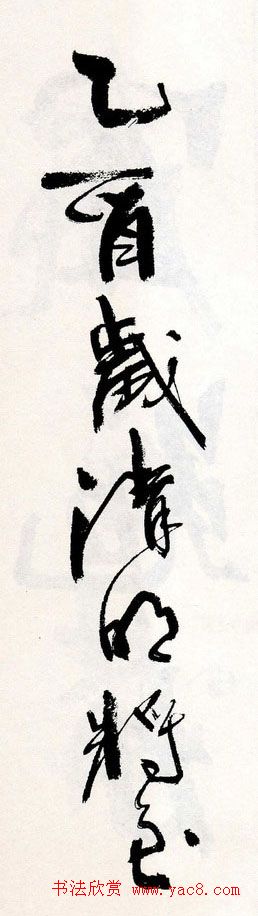 乙酉歲清明將至
书法欣赏 www.yac8.com